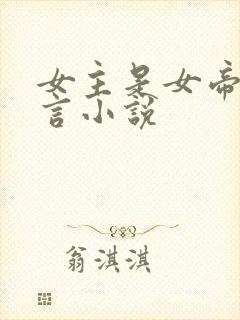 女主是女帝
言小说
翁淇淇